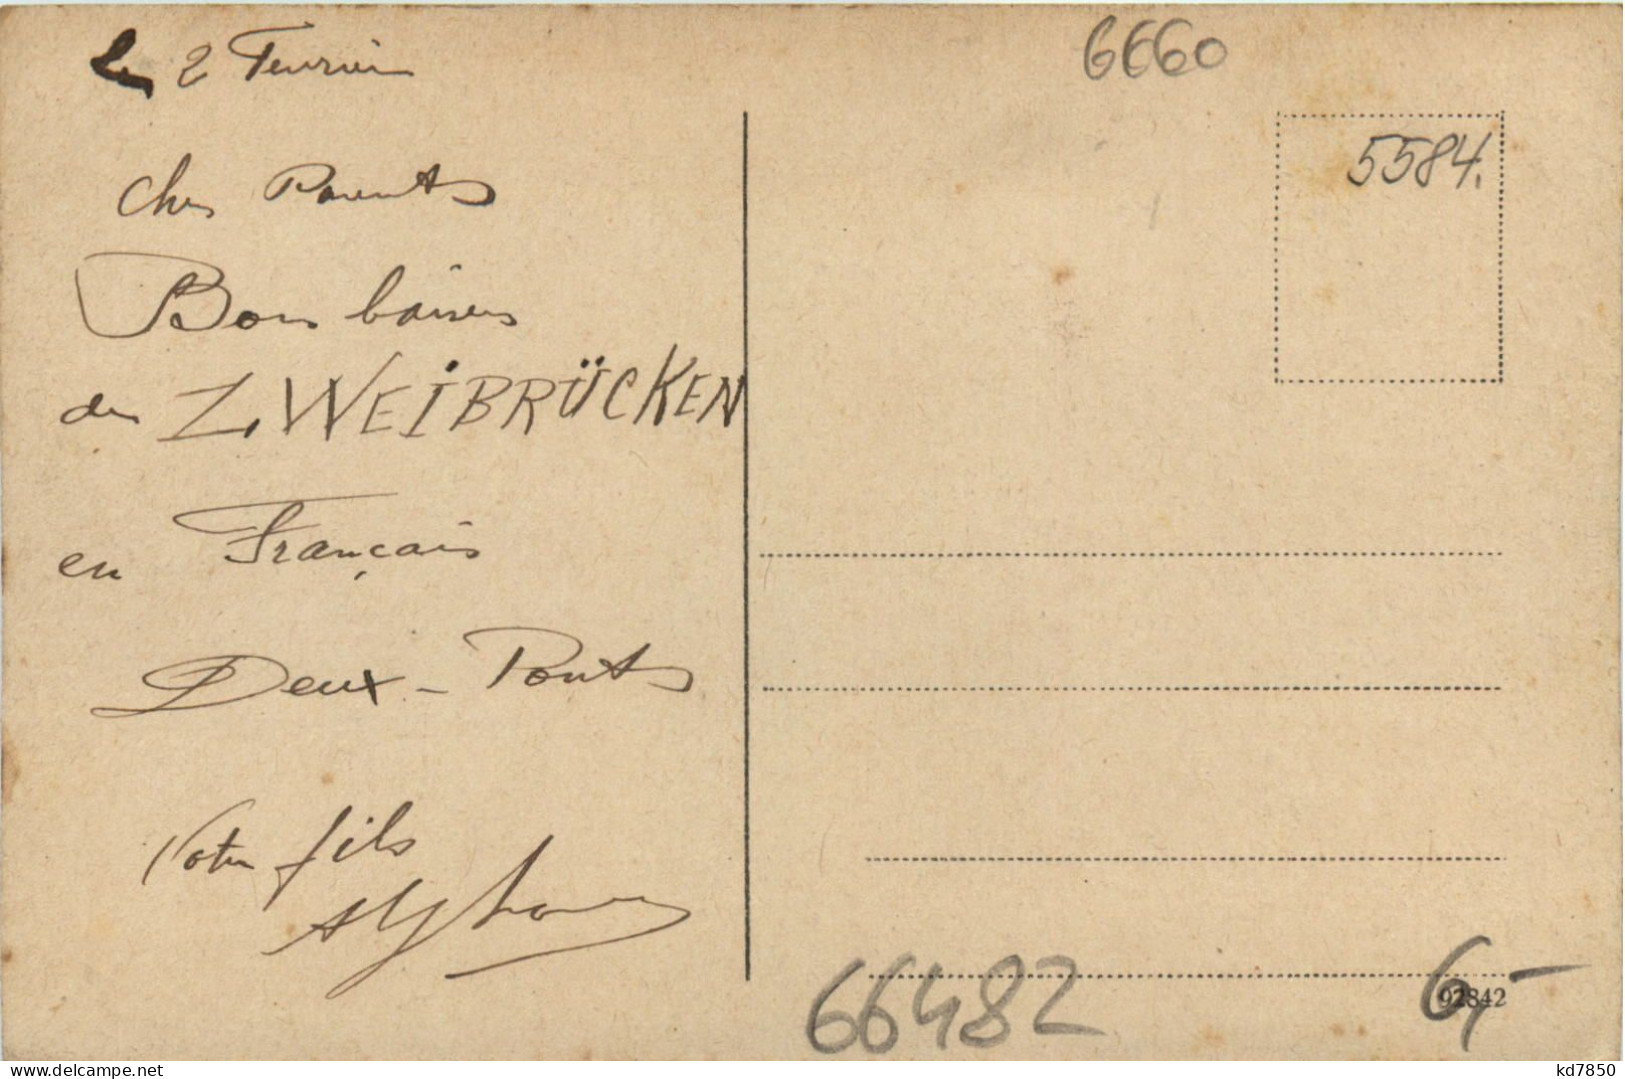 le 2 Fevrier
6660
5584.
cher Parents
Bons baisers
de ZWEIBRÜCKEN
en Français
Deux - Ponts
Votre fils
Alphonse
66482
6,-
92842
kd7850